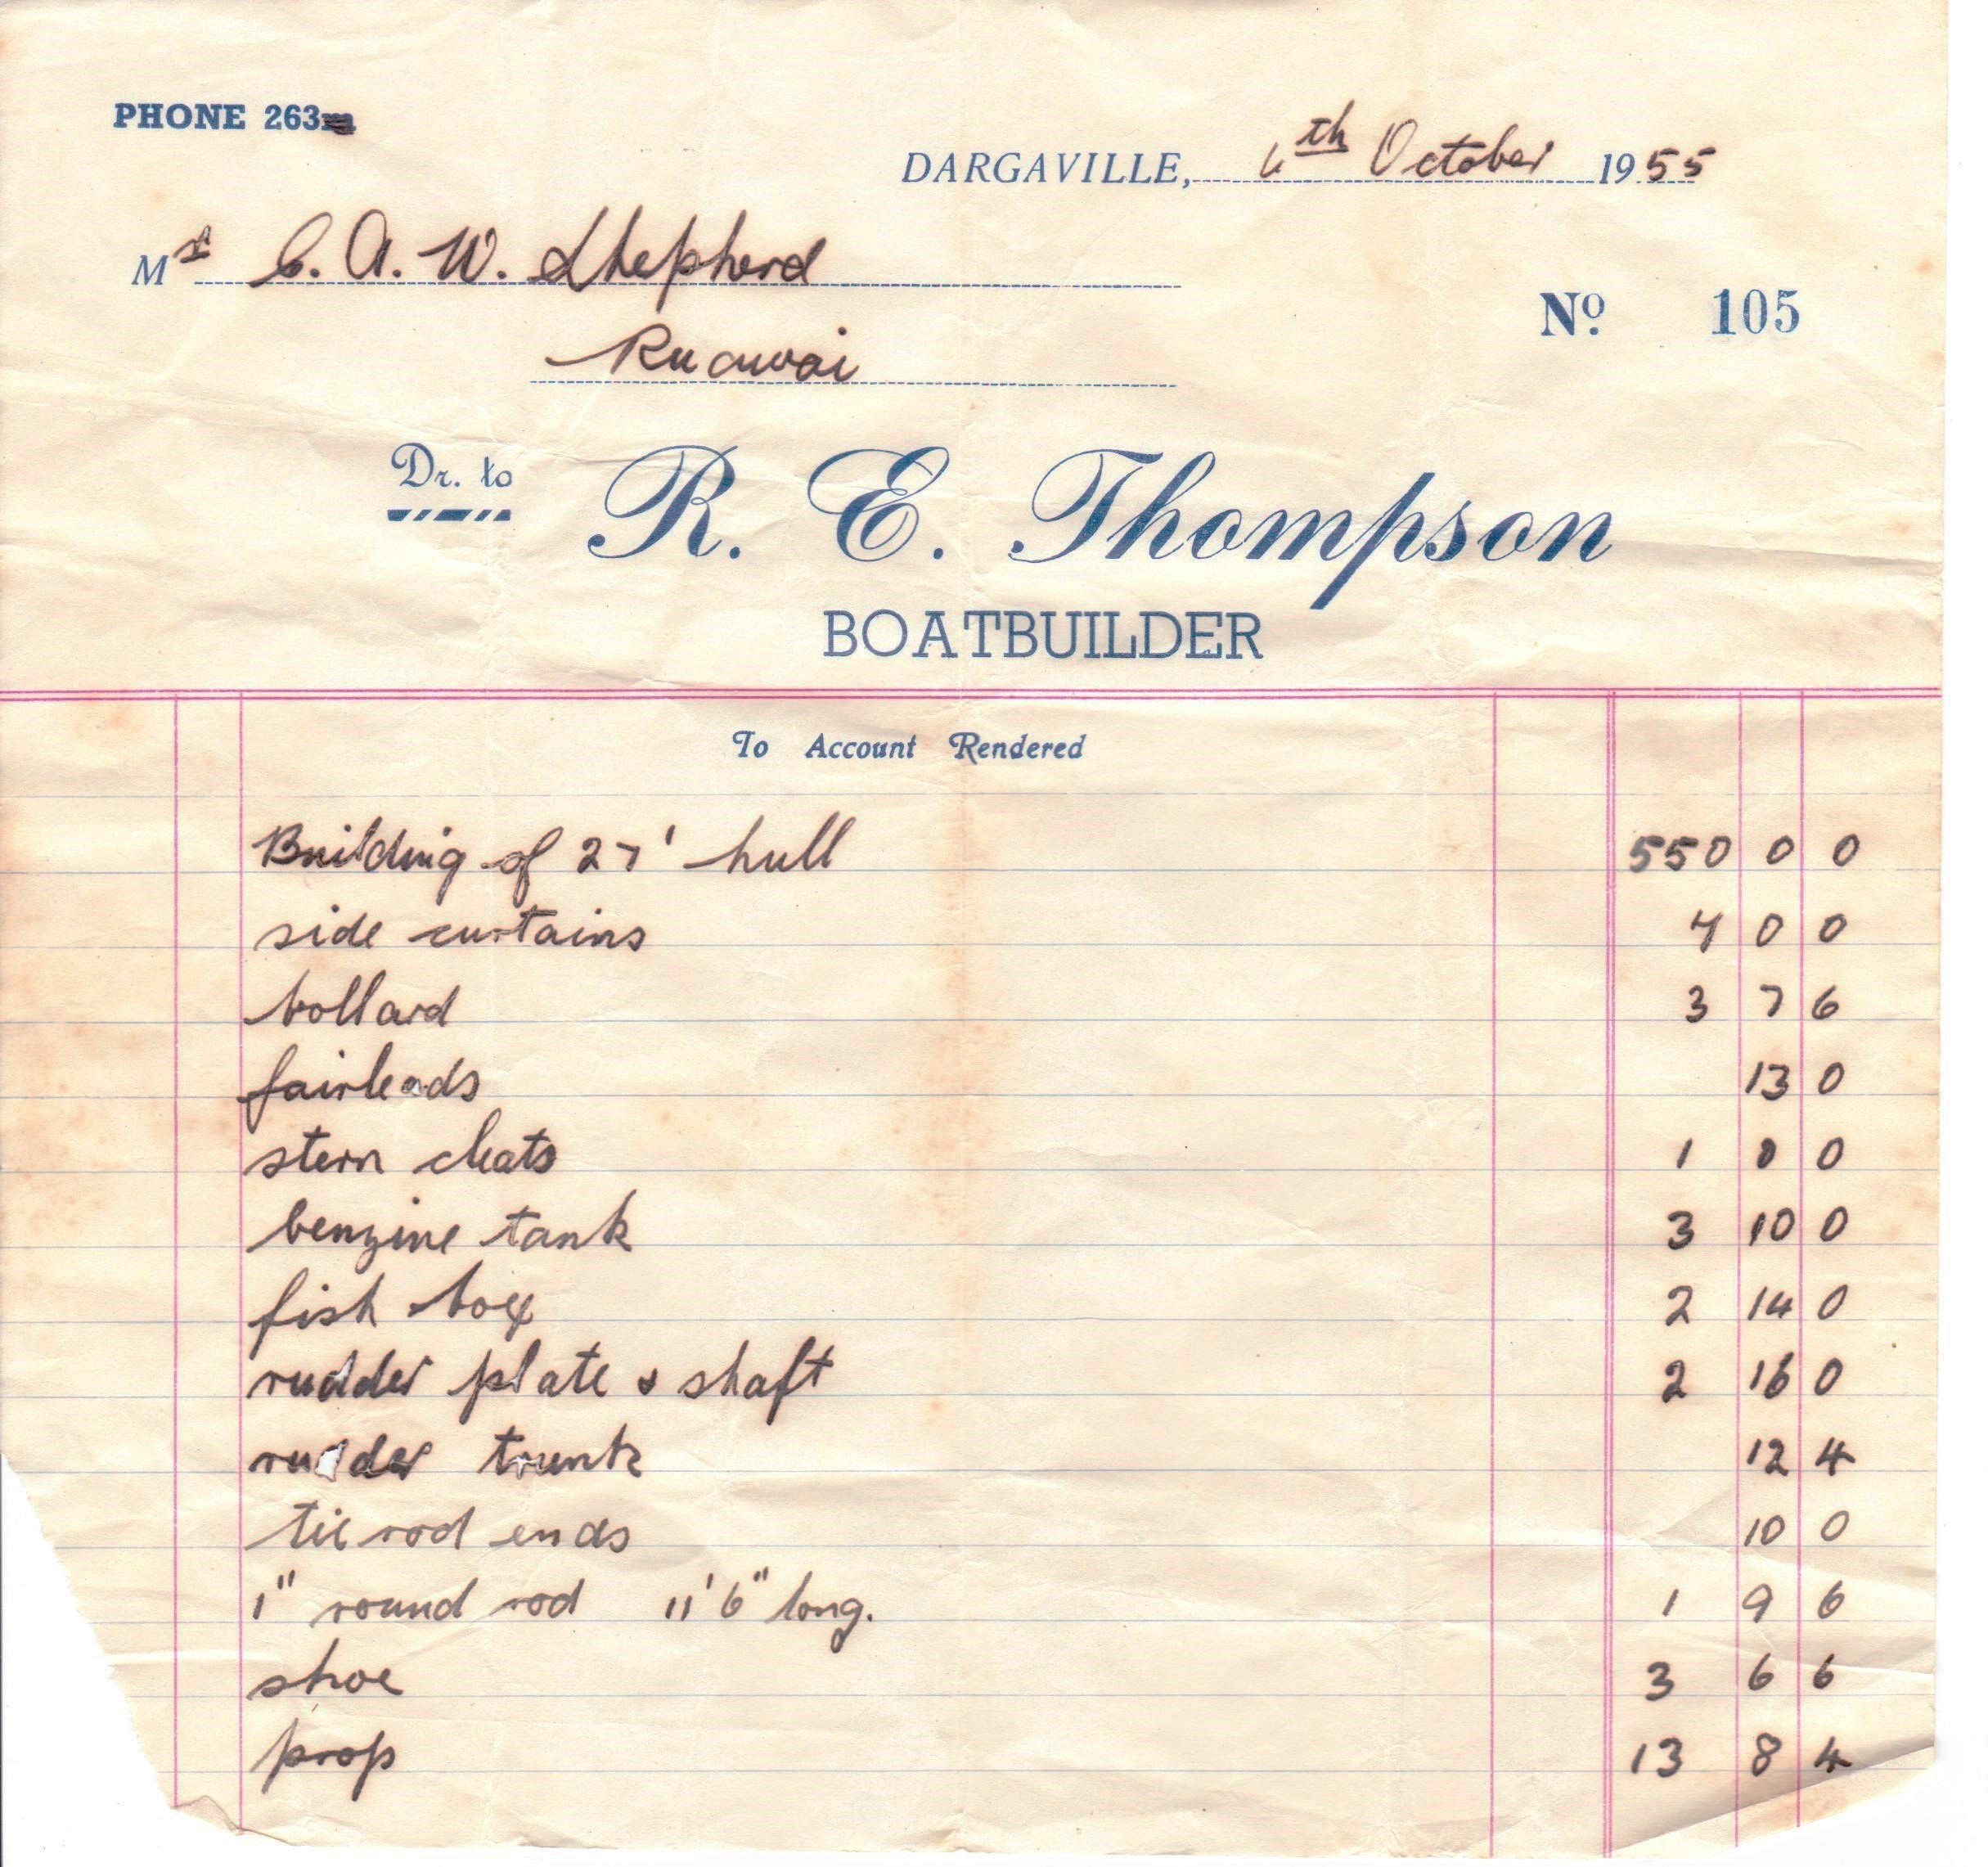 PHONE 263
DARGAVILLE, 6th October 1955
Mr C. A. W. Shepherd
Ruawai
No. 105
Dr. to R. E. Thompson
BOATBUILDER
To Account Rendered
Building of 27' hull 550 0 0
side curtains 0 0
bollard 3 7 6
fairleads 13 0
stern cleats 1 0 0
benzine tank 3 10 0
fish box 2 14 0
rudder plate & shaft 2 16 0
rudder trunk 12 4
tie rod ends 10 0
1" round rod 11'6" long. 1 9 6
shoe 3 6 6
prop 13 8 4